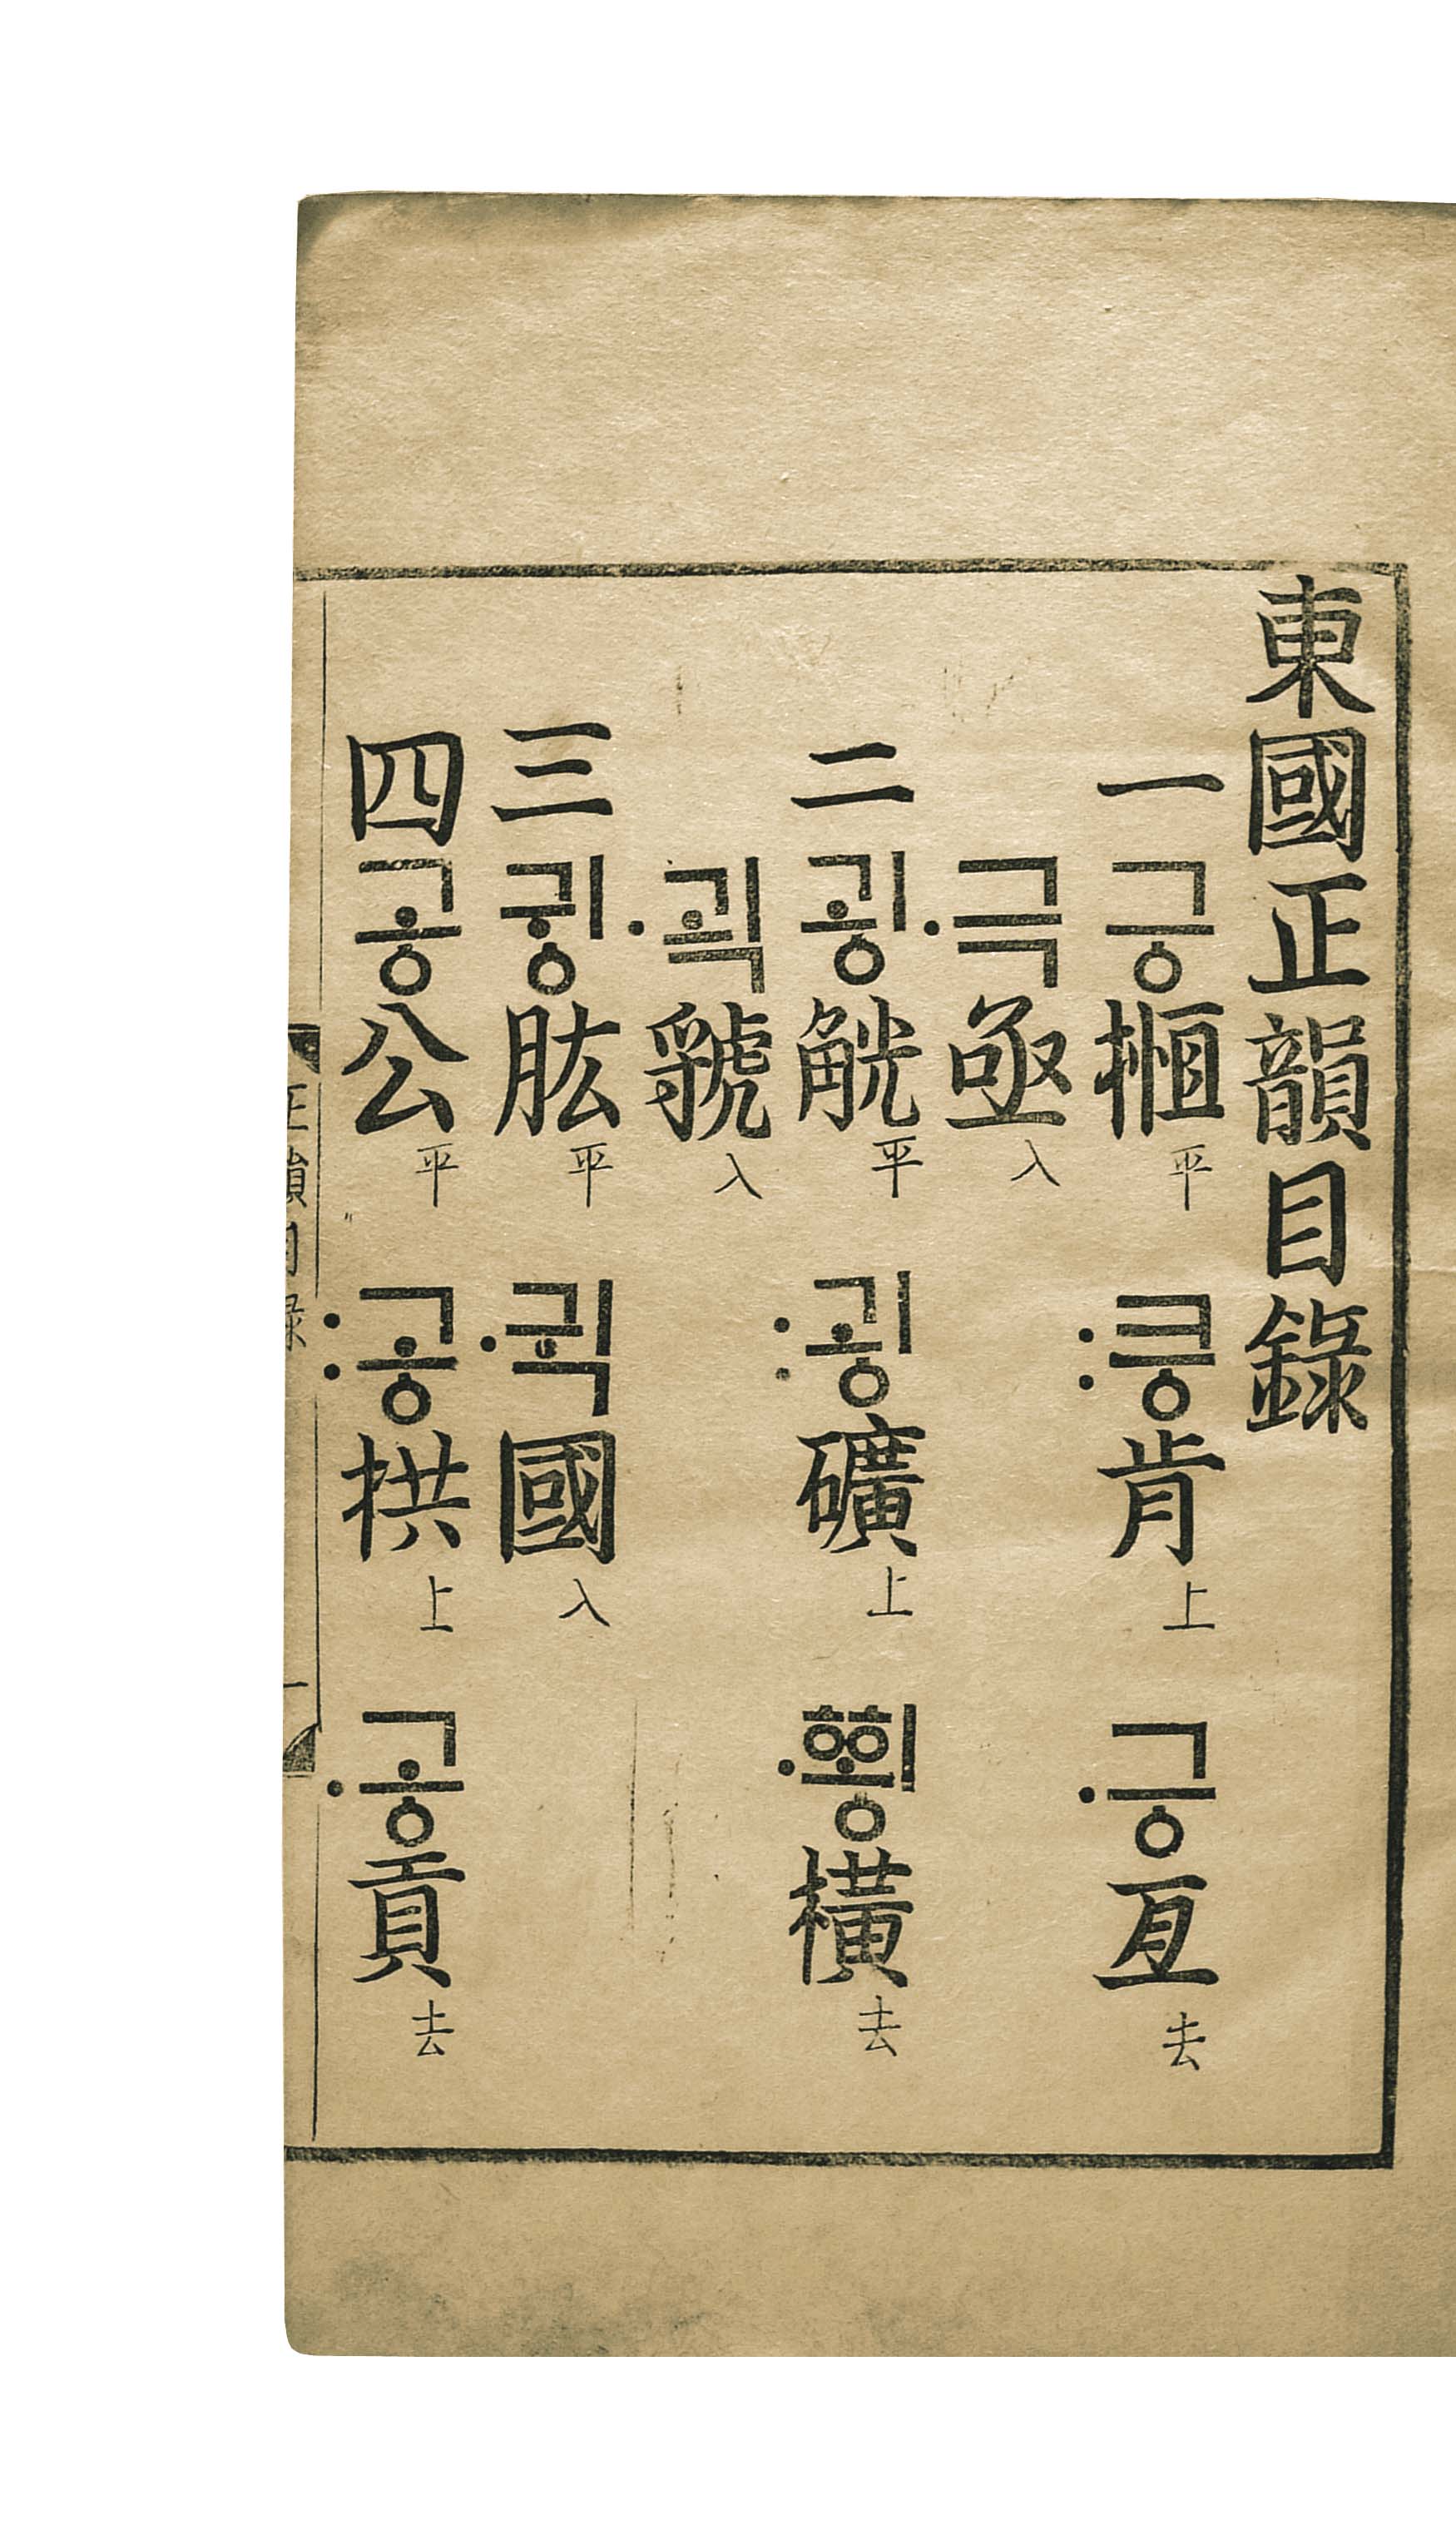 東國正韻目錄
一긍揯平 :킁肯上 ·긍亙去
·극亟入
二굉觥平 :굉礦上 ·ᅘᅬᆼ橫去
·괵虢入
三귕肱平 ·귁國入
四공公平 :공拱上 ·공貢去
正韻目錄 一